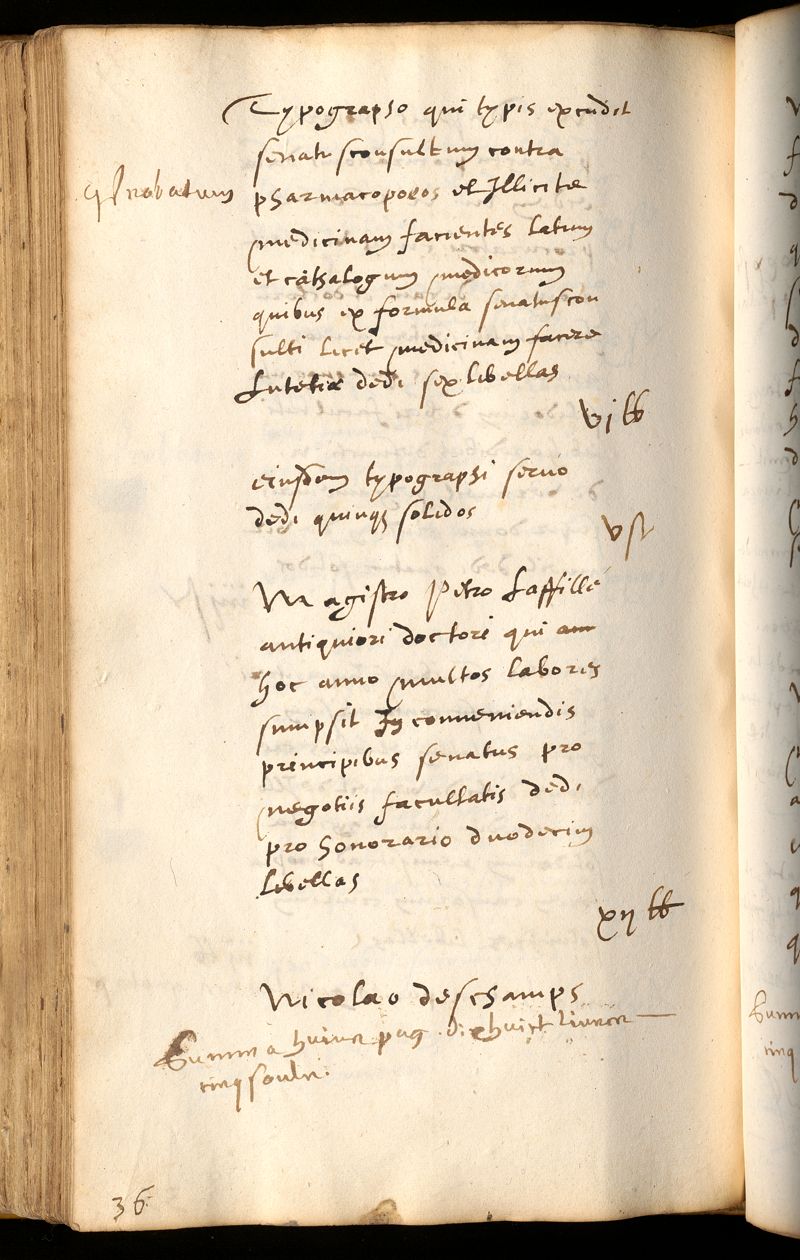 Typographo qui typis excudit
senatusconsultum contra
probatum
pharmacopolos et Illicite
medicinam facientes latum
et cathalogum medicorum
quibus ex formula senatuscon
sulti licet medicinam facere
Lutetiæ dedi sex libellas
vj ℔
eiusdem typographi servo
dedi quinq solidos
v s
Magistro Petro Laffillé
antiquiori doctori qui
hoc anno multos labores
sumpsit In conveniendis
principibus senatus pro
negotiis facultatis dedi
pro honorario duodecim
libellas
xij ℔
Nicolao deschamps
Summa huius pag. dixhuict livres
cinq soulz.
36